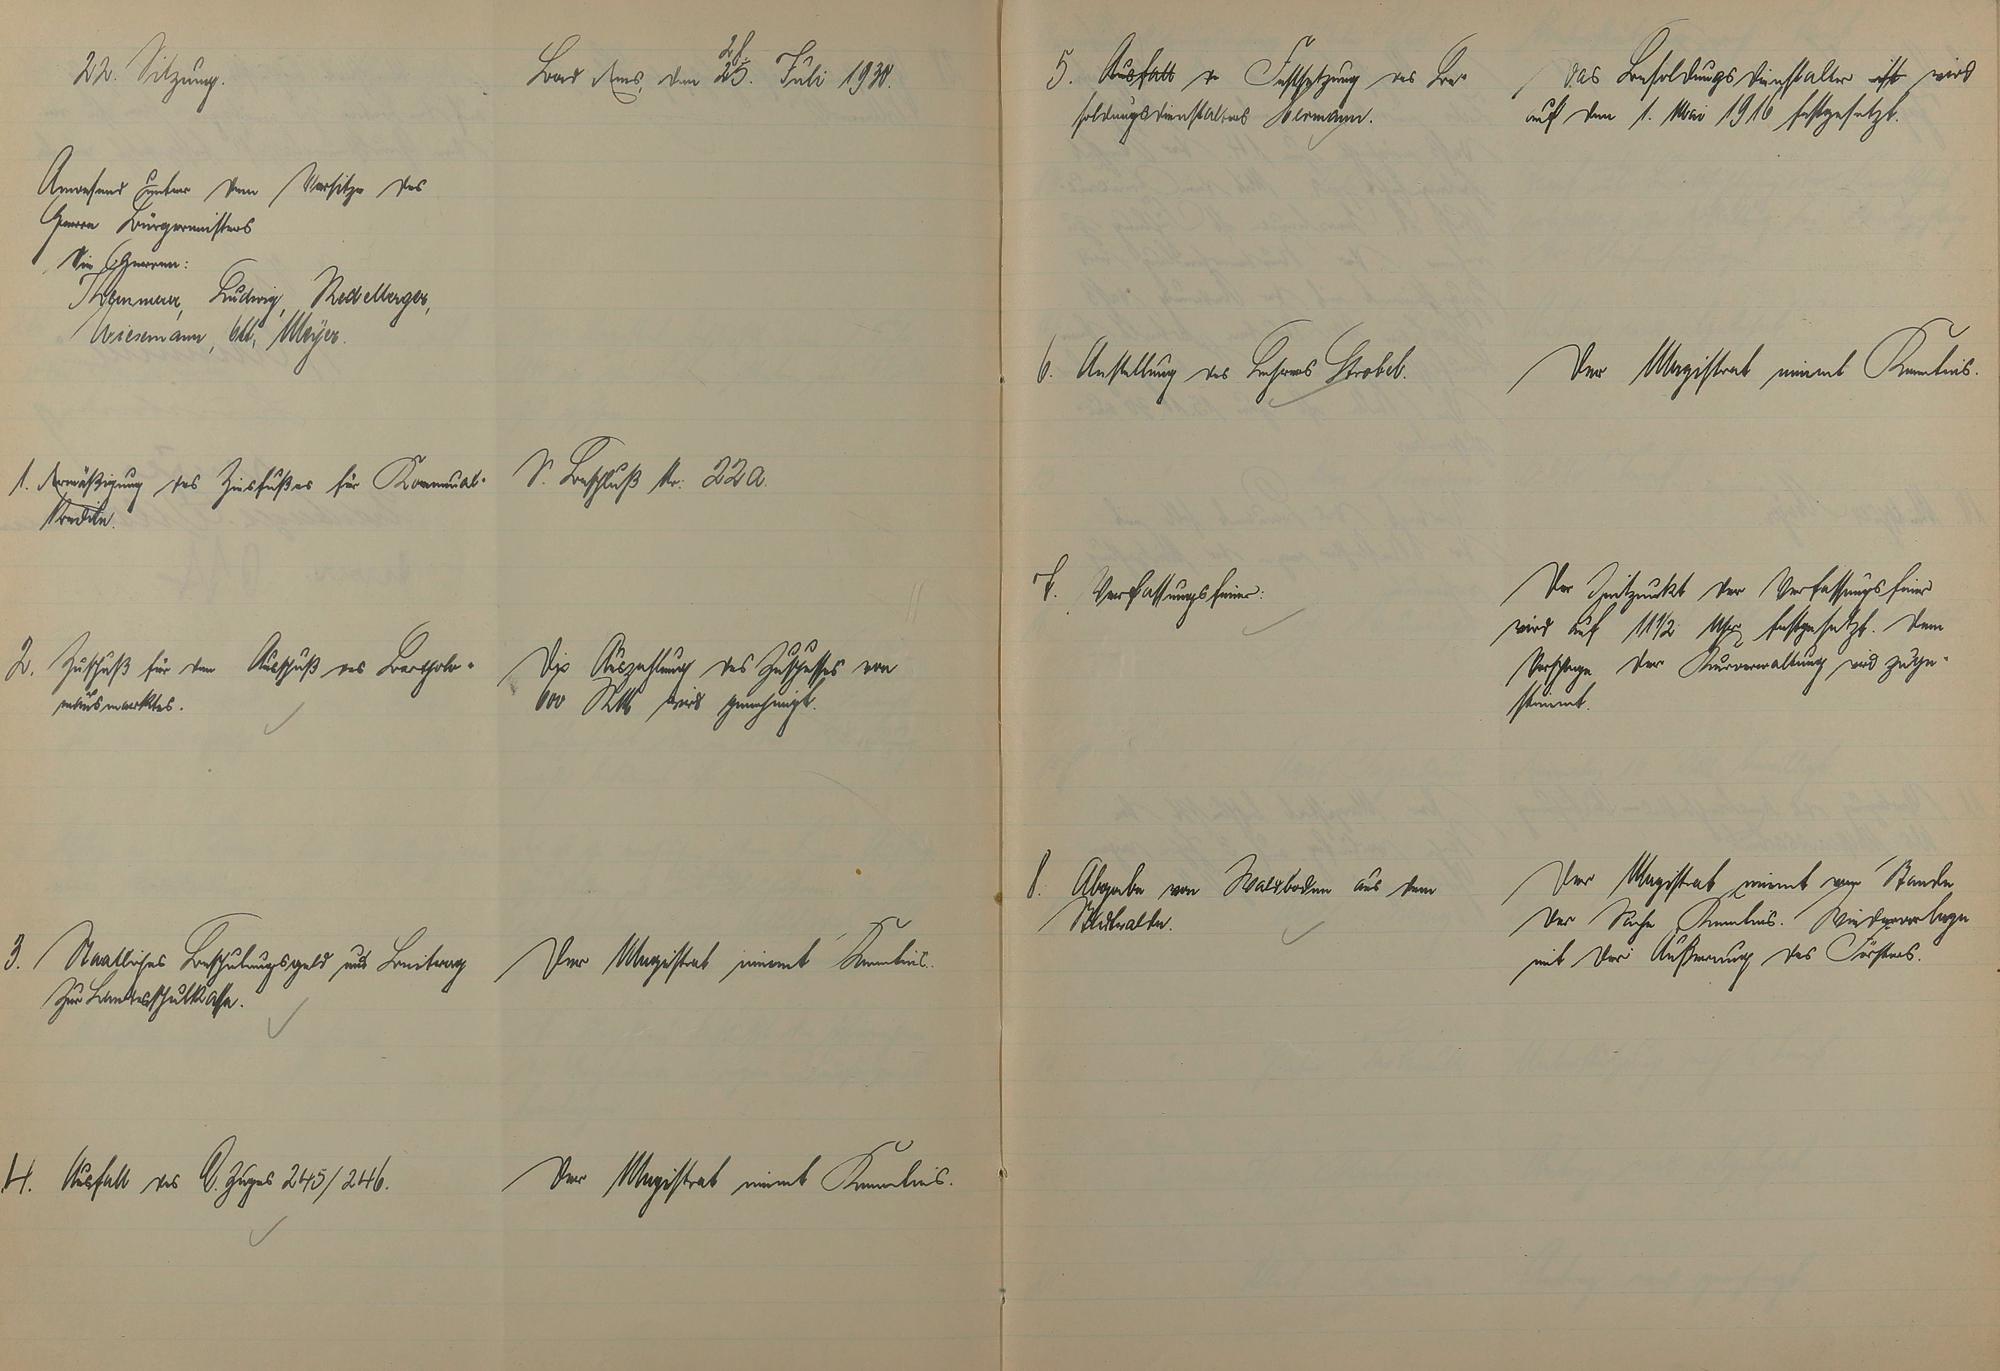 22. Sitzung.
Bad Ems, den 28. Juli 1930.
Anwesend unter dem Vorsitze des
Herrn Bürgermeisters
die Herren:
Ludwig,
Wiesemann, Meyer.
1. Ermäßigung des Zinsfußes für Kommunal-
kredite.
S. Beschluß Nr. 22a.
2. Zuschuß für den Ausschuß des Bartholo-
mäusmarktes.
Die Auszahlung des Zuschusses von
600 RM wird genehmigt.
3. Staatliches Beschulungsgeld und Beitrag
zur Landesschulkasse.
Der Magistrat nimmt Kenntnis.
4. Ausfall des D. Zuges 245/246.
Der Magistrat nimmt Kenntnis.
5. Ausfall de Festsetzung des Be-
soldungsdienstalters Hermann.
Das Besoldungsdienstalter ist wird
auf den 1. Mai 1916 festgesetzt.
6. Anstellung des Lehrers Strobel.
Der Magistrat nimmt Kenntnis.
7. Verfassungsfeier:
Der Zeitpunkt der Verfassungsfeier
wird auf 11 1/2 Uhr festgesetzt. Dem
Vorschlage der Kurverwaltung wird zuge-
stimmt.
8. Abgabe von Waldboden aus dem
Stadtwalde.
Der Magistrat nimmt vom Stande
der Sache Kenntnis. Wiedervorlage
mit der Äußerung des Försters.